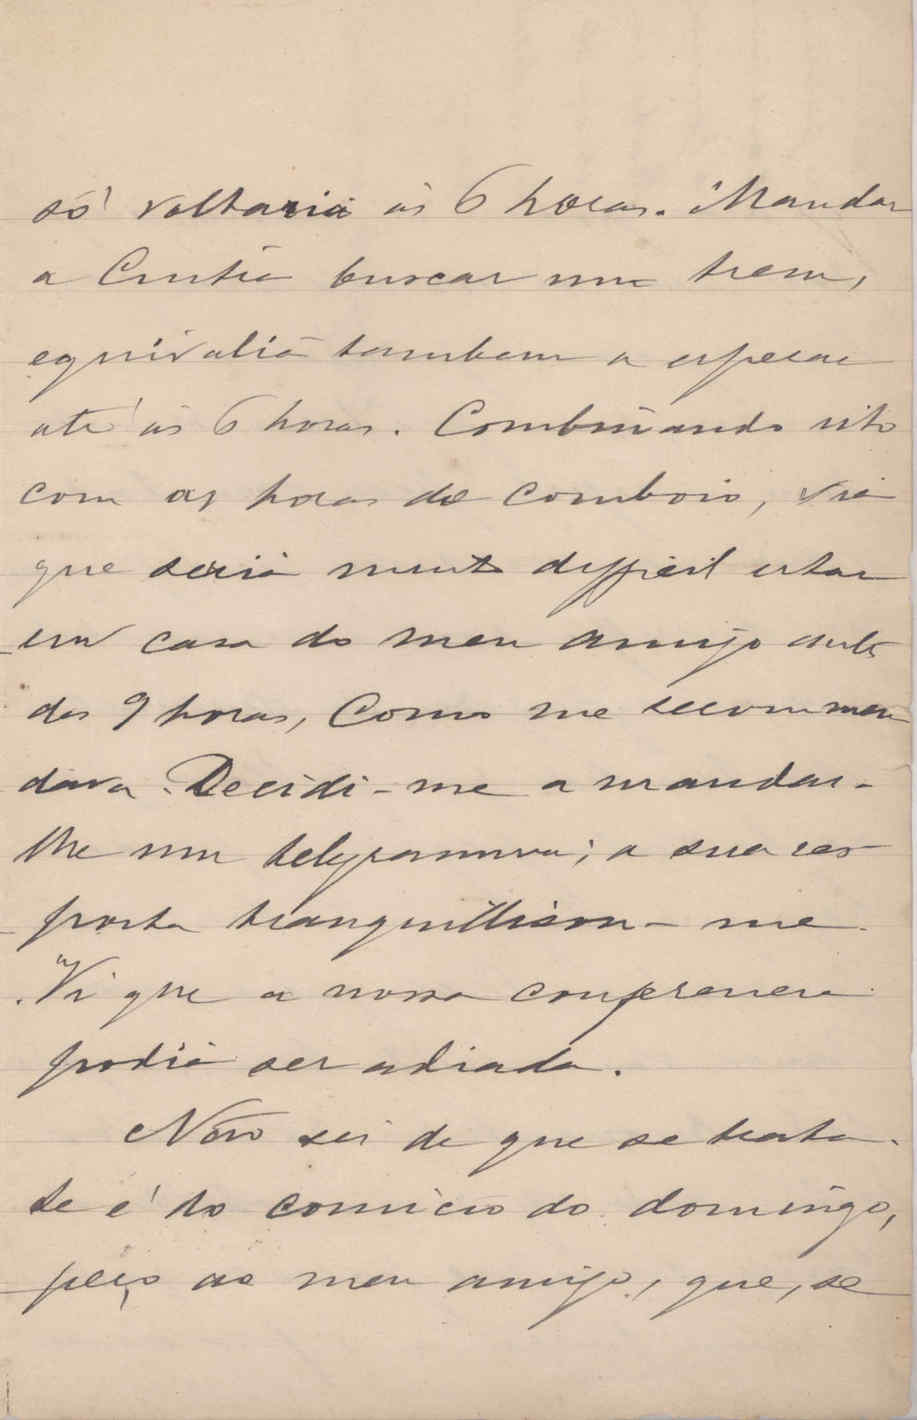 só voltaria ás 6 horas. Mandar
a Cintra buscar um trem,
equivalia tambem a esperar
até ás 6 horas. Combinando isto
com as horas do comboio, via
que seria muito difficil estar
em casa do meu amigo antes
das 9 horas, como me recommen
dava. Decidi-me a mandar-
lhe um telegramma; a sua res
posta tranquillisou-me.
Vi que a nossa conferencia
podia ser adiada.
Não sei de que se trata.
Se é do comicio do domingo,
peço ao meu amigo, que, se